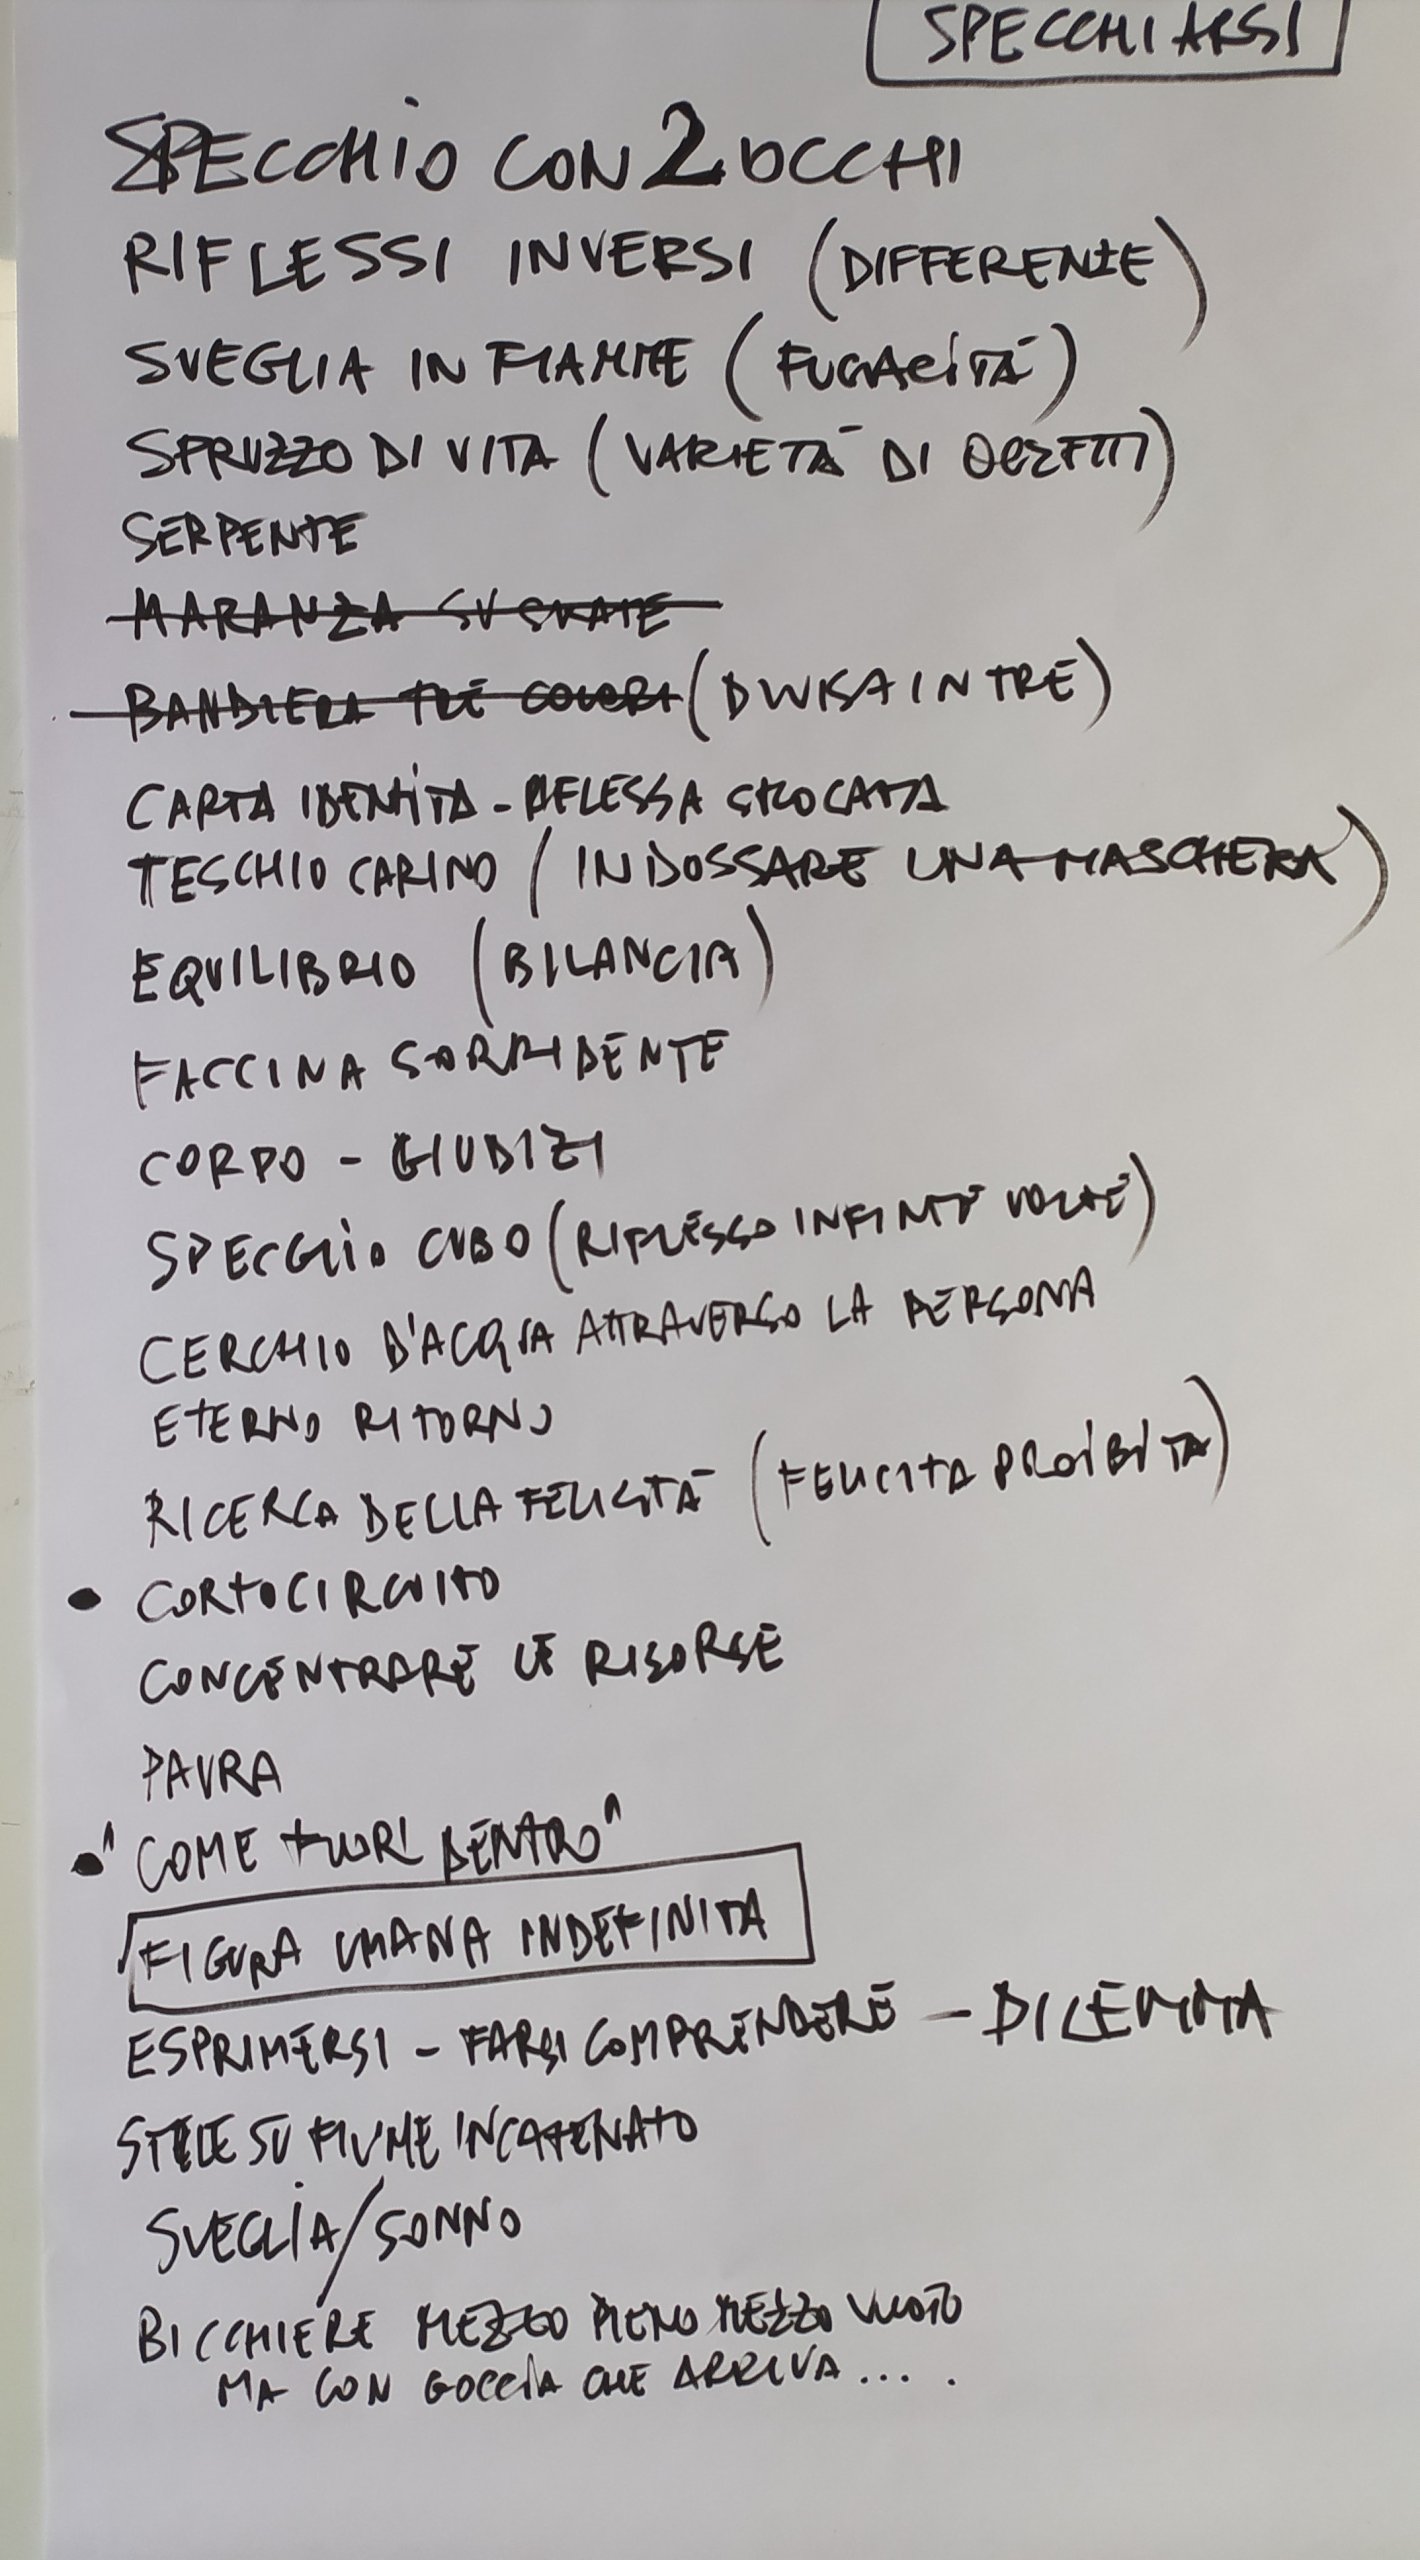 SPECCHIARSI
SPECCHIO CON 2 OCCHI
RIFLESSI INVERSI (DIFFERENZE)
SVEGLIA IN FIAMME (FUGACITÀ)
SPRUZZO DI VITA (VARIETÀ DI OGGETTI)
SERPENTE
MARANZA SU SKATE
BANDIERA TRE COLORI (DIVISA IN TRE)
CARTA IDENTITÀ - RIFLESSA SFOCATA
TESCHIO CARINO (INDOSSARE UNA MASCHERA)
EQUILIBRIO (BILANCIA)
FACCINA SORRIDENTE
CORPO - GIUDIZI
SPECCHIO CUBO (RIFLESSO INFINITE VOLTE)
CERCHIO D'ACQUA ATTRAVERSO LA PERSONA
ETERNO RITORNO
RICERCA DELLA FELICITÀ (FELICITA PROIBITA)
• CORTOCIRCUITO
CONCENTRARE LE RISORSE
PAURA
• "COME FUORI DENTRO"
FIGURA UMANA INDEFINITA
ESPRIMERSI - FARSI COMPRENDERE - DILEMMA
SU FIUME INCATENATO
SVEGLIA/SONNO
BICCHIERE MEZZO PIENO MEZZO VUOTO
MA CON GOCCIA CHE ARRIVA....